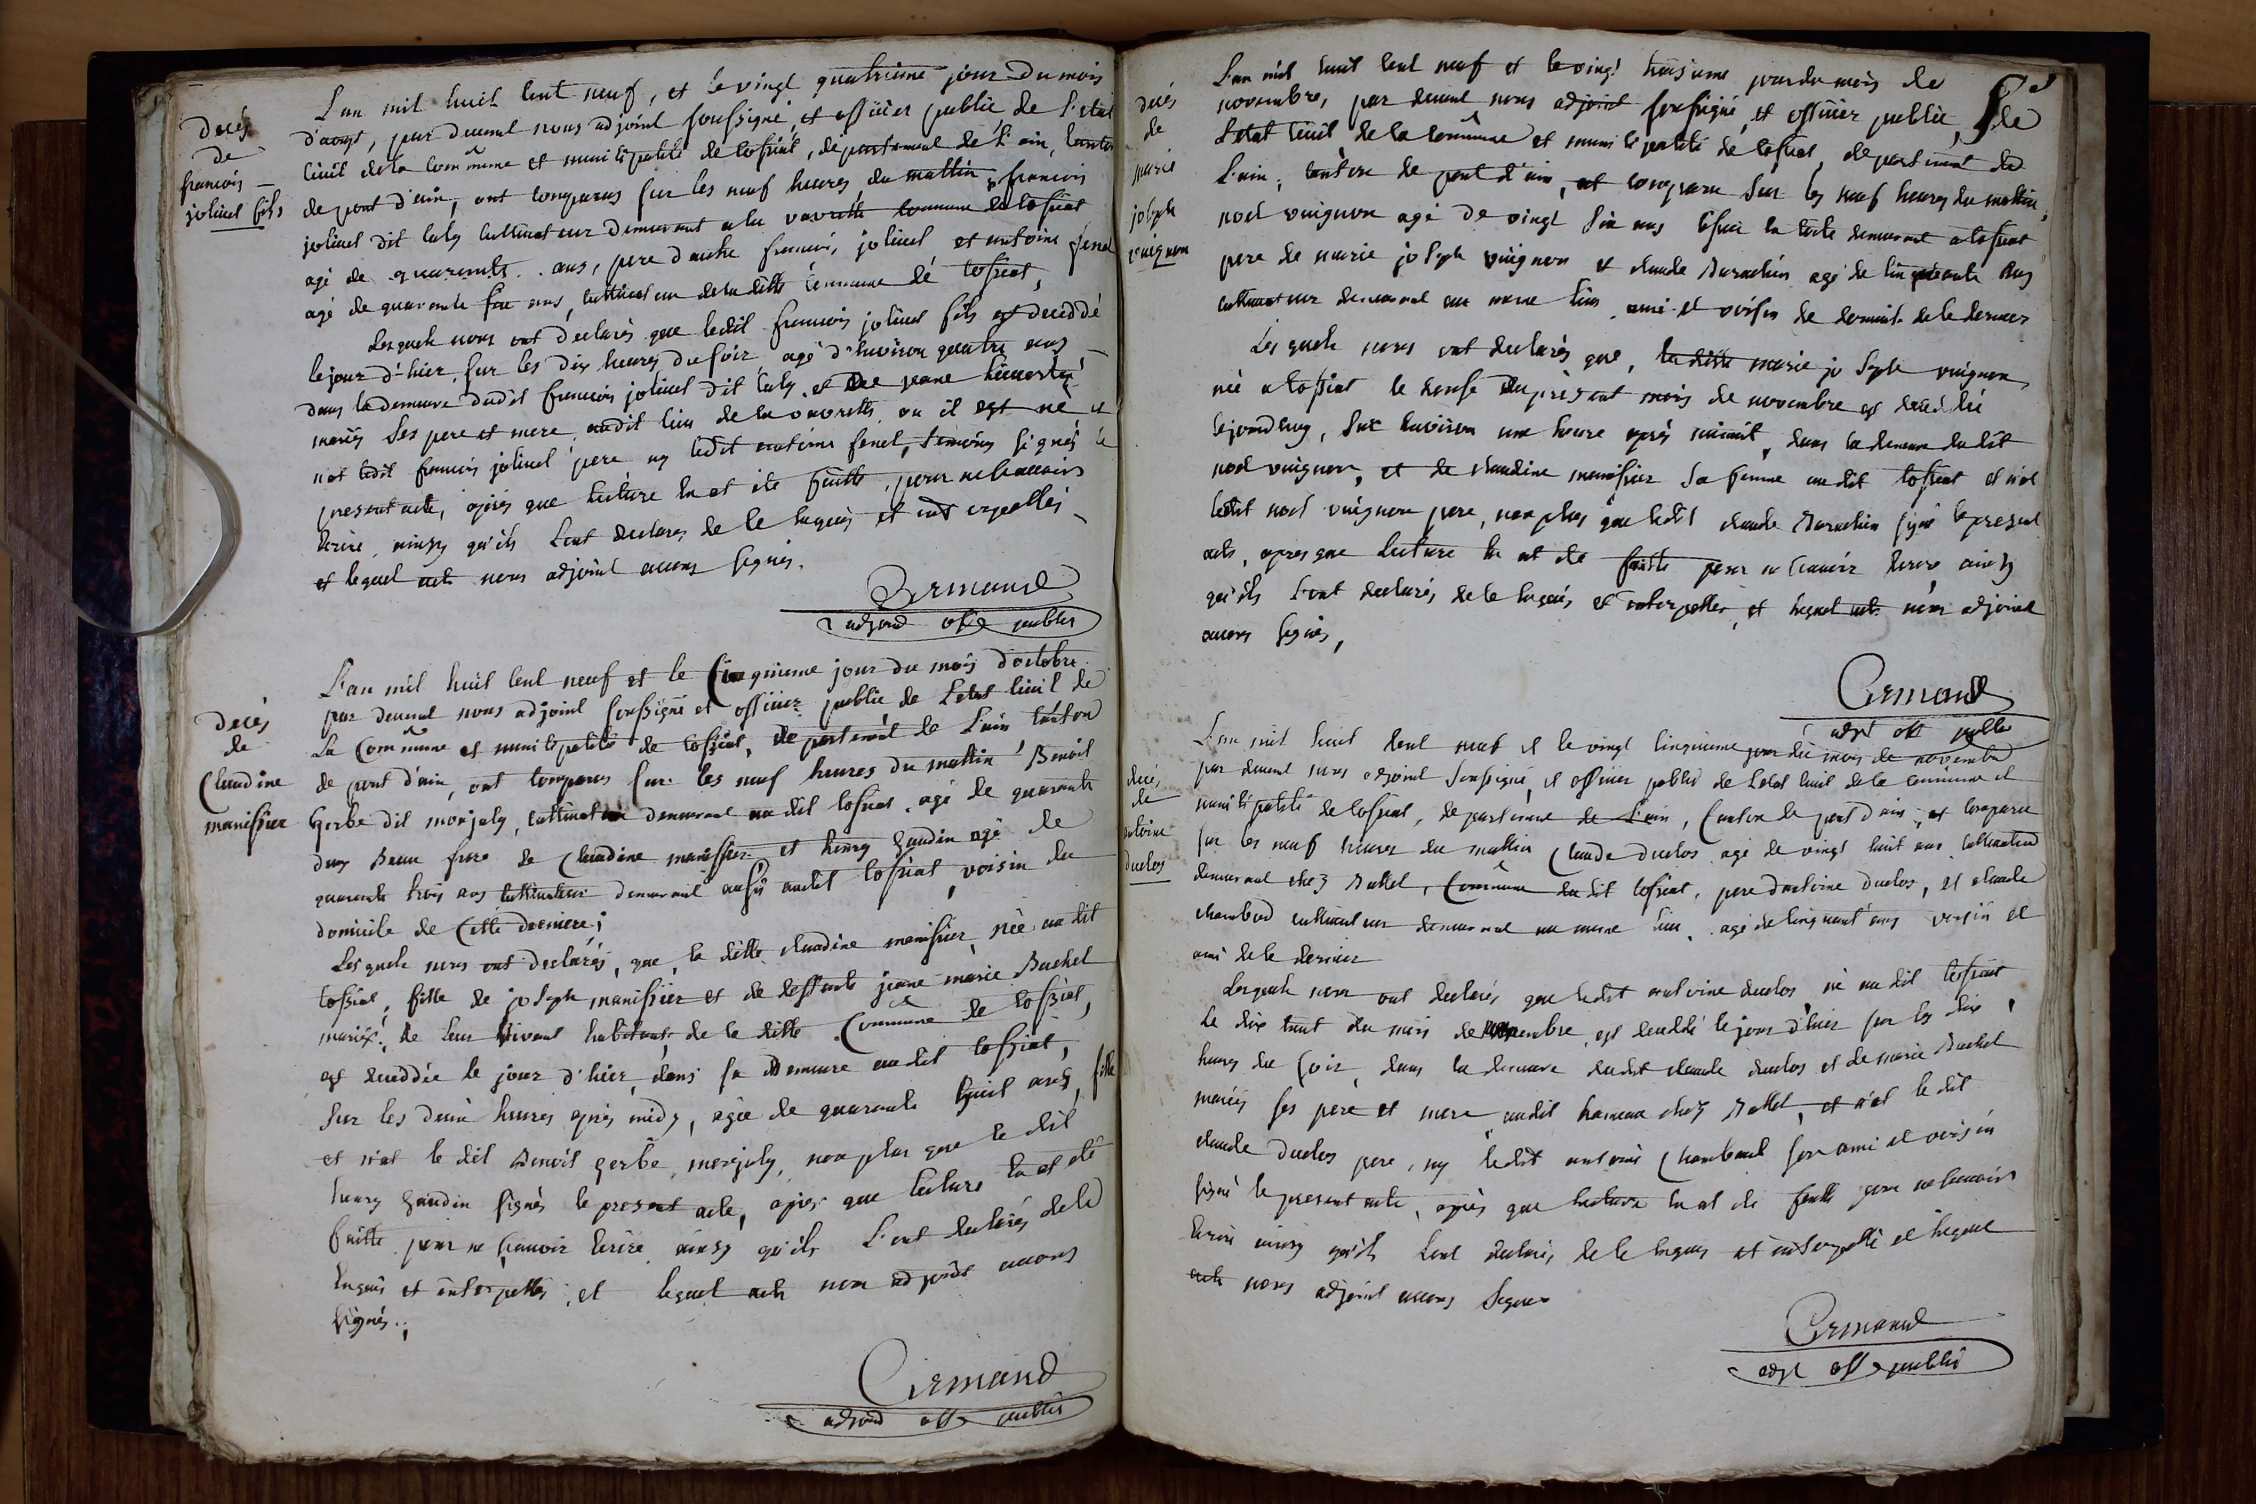 Decés
de
francois
jolivet fils
L'an mil huit cent neuf, et le vingt quatrieme jour du mois
d'aoust, par devant nous adjoint soussigné, et officier public de l'etat
civil de la commune et municipalité de tossiat, departement de l'ain, canton
de pont d'ain, ont comparus sur les neuf heures du mattin francois
jolivet dit cultivateur demeurant a la vavrette commune de tossiat
agé de quarante ans, pere d'autre francois jolivet et antoine fenet
agé de quarante ans, cultivateur de la ditte commune de tossiat,
Lesquels nous ont declarés que ledit francois jolivet fils est deceddé
le jour d'hier, sur les dix heures du soir agé d'environ quatre ans
dans la demeure dudit francois jolivet dit et de jeane
mariés ses pere et mere, audit lieu de la vavrette ou il est né et
n'at ledit francois jolivet pere ny ledit antoine fenet, signés le
present acte, après que lecture en at été faitte, pour ne scavoir
ecrire ainsy qu'ils l'ont declarés de ce requis et interpellés
et lequel acte nous adjoint avons signés.
adjoint off public
decés
de
Claudine
manissier
L'an mil huit cent neuf et le Cinquieme jour du mois d'octobre
par devant nous adjoint soussigné et officier public de l'etat civil de
La Commune et municipalité de tossiat, departement de l'ain canton
de pont d'ain, ont comparus sur les neuf heures du mattin Benoit
Gerbe dit monjoly, cultivateur demeurant au dit tossiat, agé de quarante
deux Beau frere de Claudine manissier et henry gaudin agé de
quarante trois ans cultivateur demeurant aussy audit tossiat, voisin du
domicile de Cette derniere;
Lesquels nous ont declarés, que, la ditte claudine manissier, née au dit
tossiat, fille de joseph manissier et de deffunte jeane marie Buchet
mariés, de leur vivant habitants de la ditte Commune de tossiat,
est deceddée le jour d'hier, dans sa Demeure au dit tossiat,
sur les deux heures après midy, agée de quarante huit ans, fille
et n'at le dit Benoit gerbe monjoly, non plus que le dit
henry gaudin signés le present acte, après que lecture en at été
faitte pour ne scavoir ecrire ainsy qu'ils l'ont declarés de ce
requis et interpellés, et lequel acte nous adjoint avons
signés.,
adjoint off public
decés
de
marie
joseph
vuignon
L'an mil huit cent neuf et le vingt troisieme jour du mois de
novembre, par devant nous adjoint soussigné, et officier public, de
L'etat civil, de la commune et municipalité de tossiat, departement de
L'ain, canton de pont d'ain, est comparu sur les neuf heures du mattin,
noel vuignon agé de vingt six ans demeurant a tossiat
pere de marie joseph vuignon et claude agé de cinquante ans
cultivateur demeurant au meme lieu, ami et voisin de de ce dernier
Lesquels nous ont declarés que, la ditte marie joseph vuignon,
née a tossiat le douse du present mois de novembre est deceddée
le jourd'huy, sur environ une heure après minuit, dans la demeure du dit
noel vuignon, et de claudine manissier sa femme au dit tossiat et n'at
ledit noel vuignon pere, non plus que ledit claude signé le present
acte, apres que lecture en at été faitte pour ne scavoir ecrire ainsy
qu'ils l'ont declarés, de ce requis et interpellés, et lequel acte nous adjoint
avons signés,
adjt off public
decés
de
antoine
duclos
L'an mil huit cent neuf et le vingt cinquieme jour du mois de novembre
par devant nous adjoint soussigné, et officier public de l'etat civil de la commune et
municipalité de tossiat, departement de l'ain, Canton de pont d'ain, est comparu
sur les neuf heures du mattin Claude Duclos agé de vingt huit ans cultivateur
demeurant chez Mattel, Commune du dit tossiat, pere d'antoine Duclos, et claude
chambard cultivateur demeurant au meme lieu, agé de cinquant'ans voisin et
ami de ce dernier
Lesquels nous ont declarés que ledit antoine duclos, né au dit tossiat
Le dix huit du mois de novembre, est deceddé le jour d'hier sur les dix
heures du soir, dans la demeure dudit claude duclos et de marie Buchet
mariés ses pere et mere audit hameau chez Mattel, et n'at le dit
claude Duclos pere, ny ledit antoine Chambard son ami et voisin
signé le present acte, après que lecture en at été faitte pour ne scavoir
ecrire ainsy qu'ils l'ont declarés, de ce requis et interpellé et lequel
acte nous adjoint avons signés
adjt off public